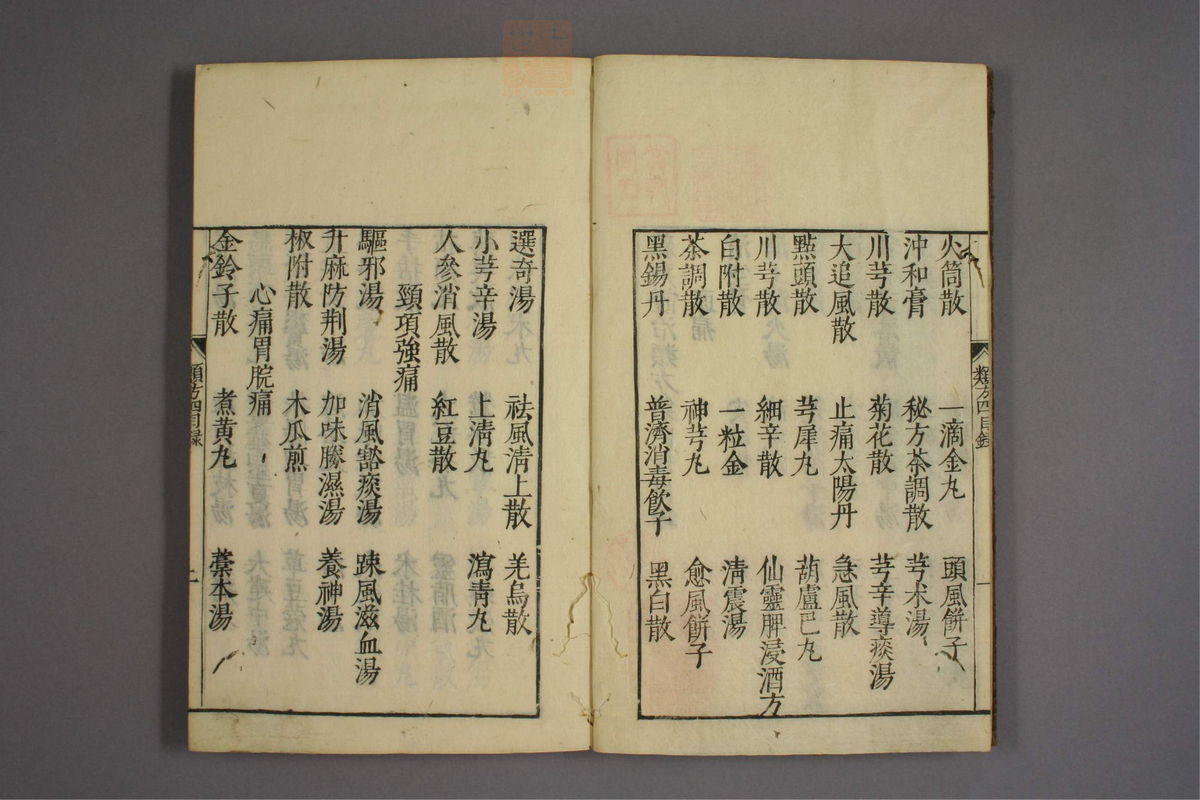 火筒散　一滴金丸　頭風餅子
沖和膏　秘方茶調散　芎术湯
川芎散　菊花散　芎辛導痰湯
大追風散　止痛太陽丹　急風散
點頭散　芎犀丸　葫蘆巴丸
川芎散　細辛散　仙靈脾浸酒方
白附散　一粒金　清震湯
茶調散　神芎丸　愈風餅子
黑錫丹　普濟消毒飲子　黑白散
類方四目錄
選奇湯　祛風清上散　羌烏散
小芎辛湯　上清丸　瀉青丸
人參消風散　紅豆散
頸項強痛
驅邪湯　消風豁痰湯　踈風滋血湯
升麻防荆湯　加味勝濕湯　養神湯
椒附散　木瓜煎
心痛胃脘痛
金鈴子散　煮黃丸　藁本湯
類方四目錄